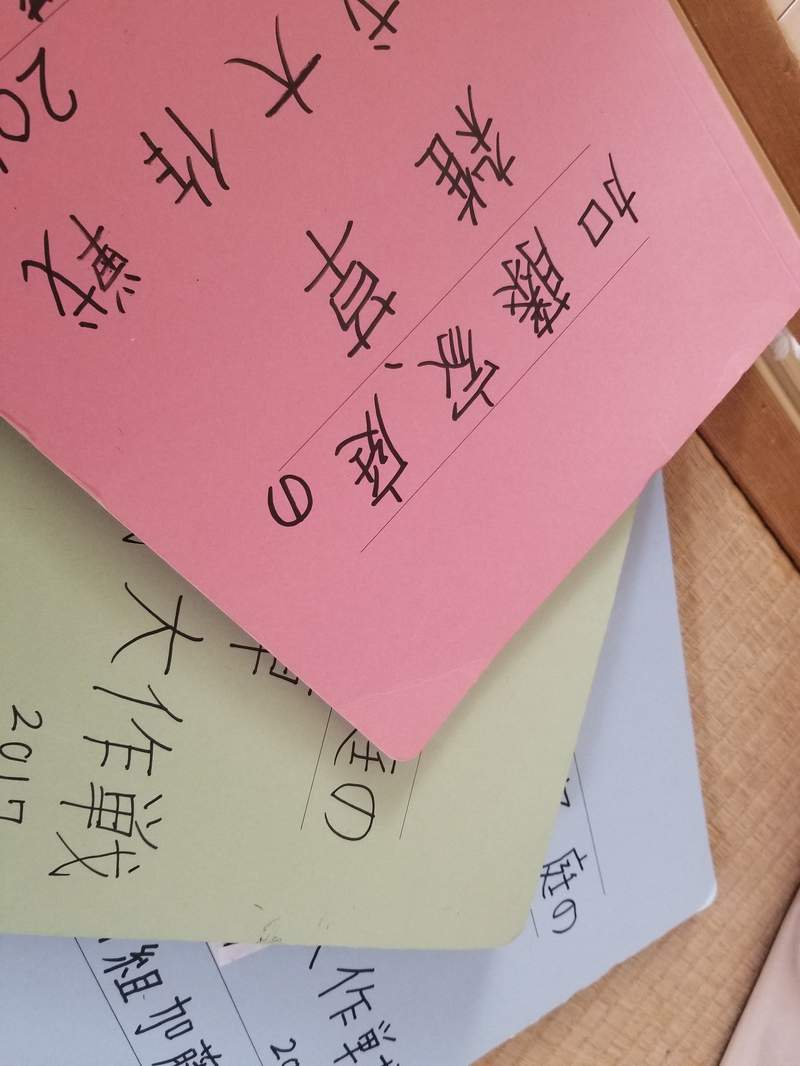 加藤家庭の
雑草
大作戦
20
庭の
草
大作戦
2017
庭の
作戦
20
組加藤